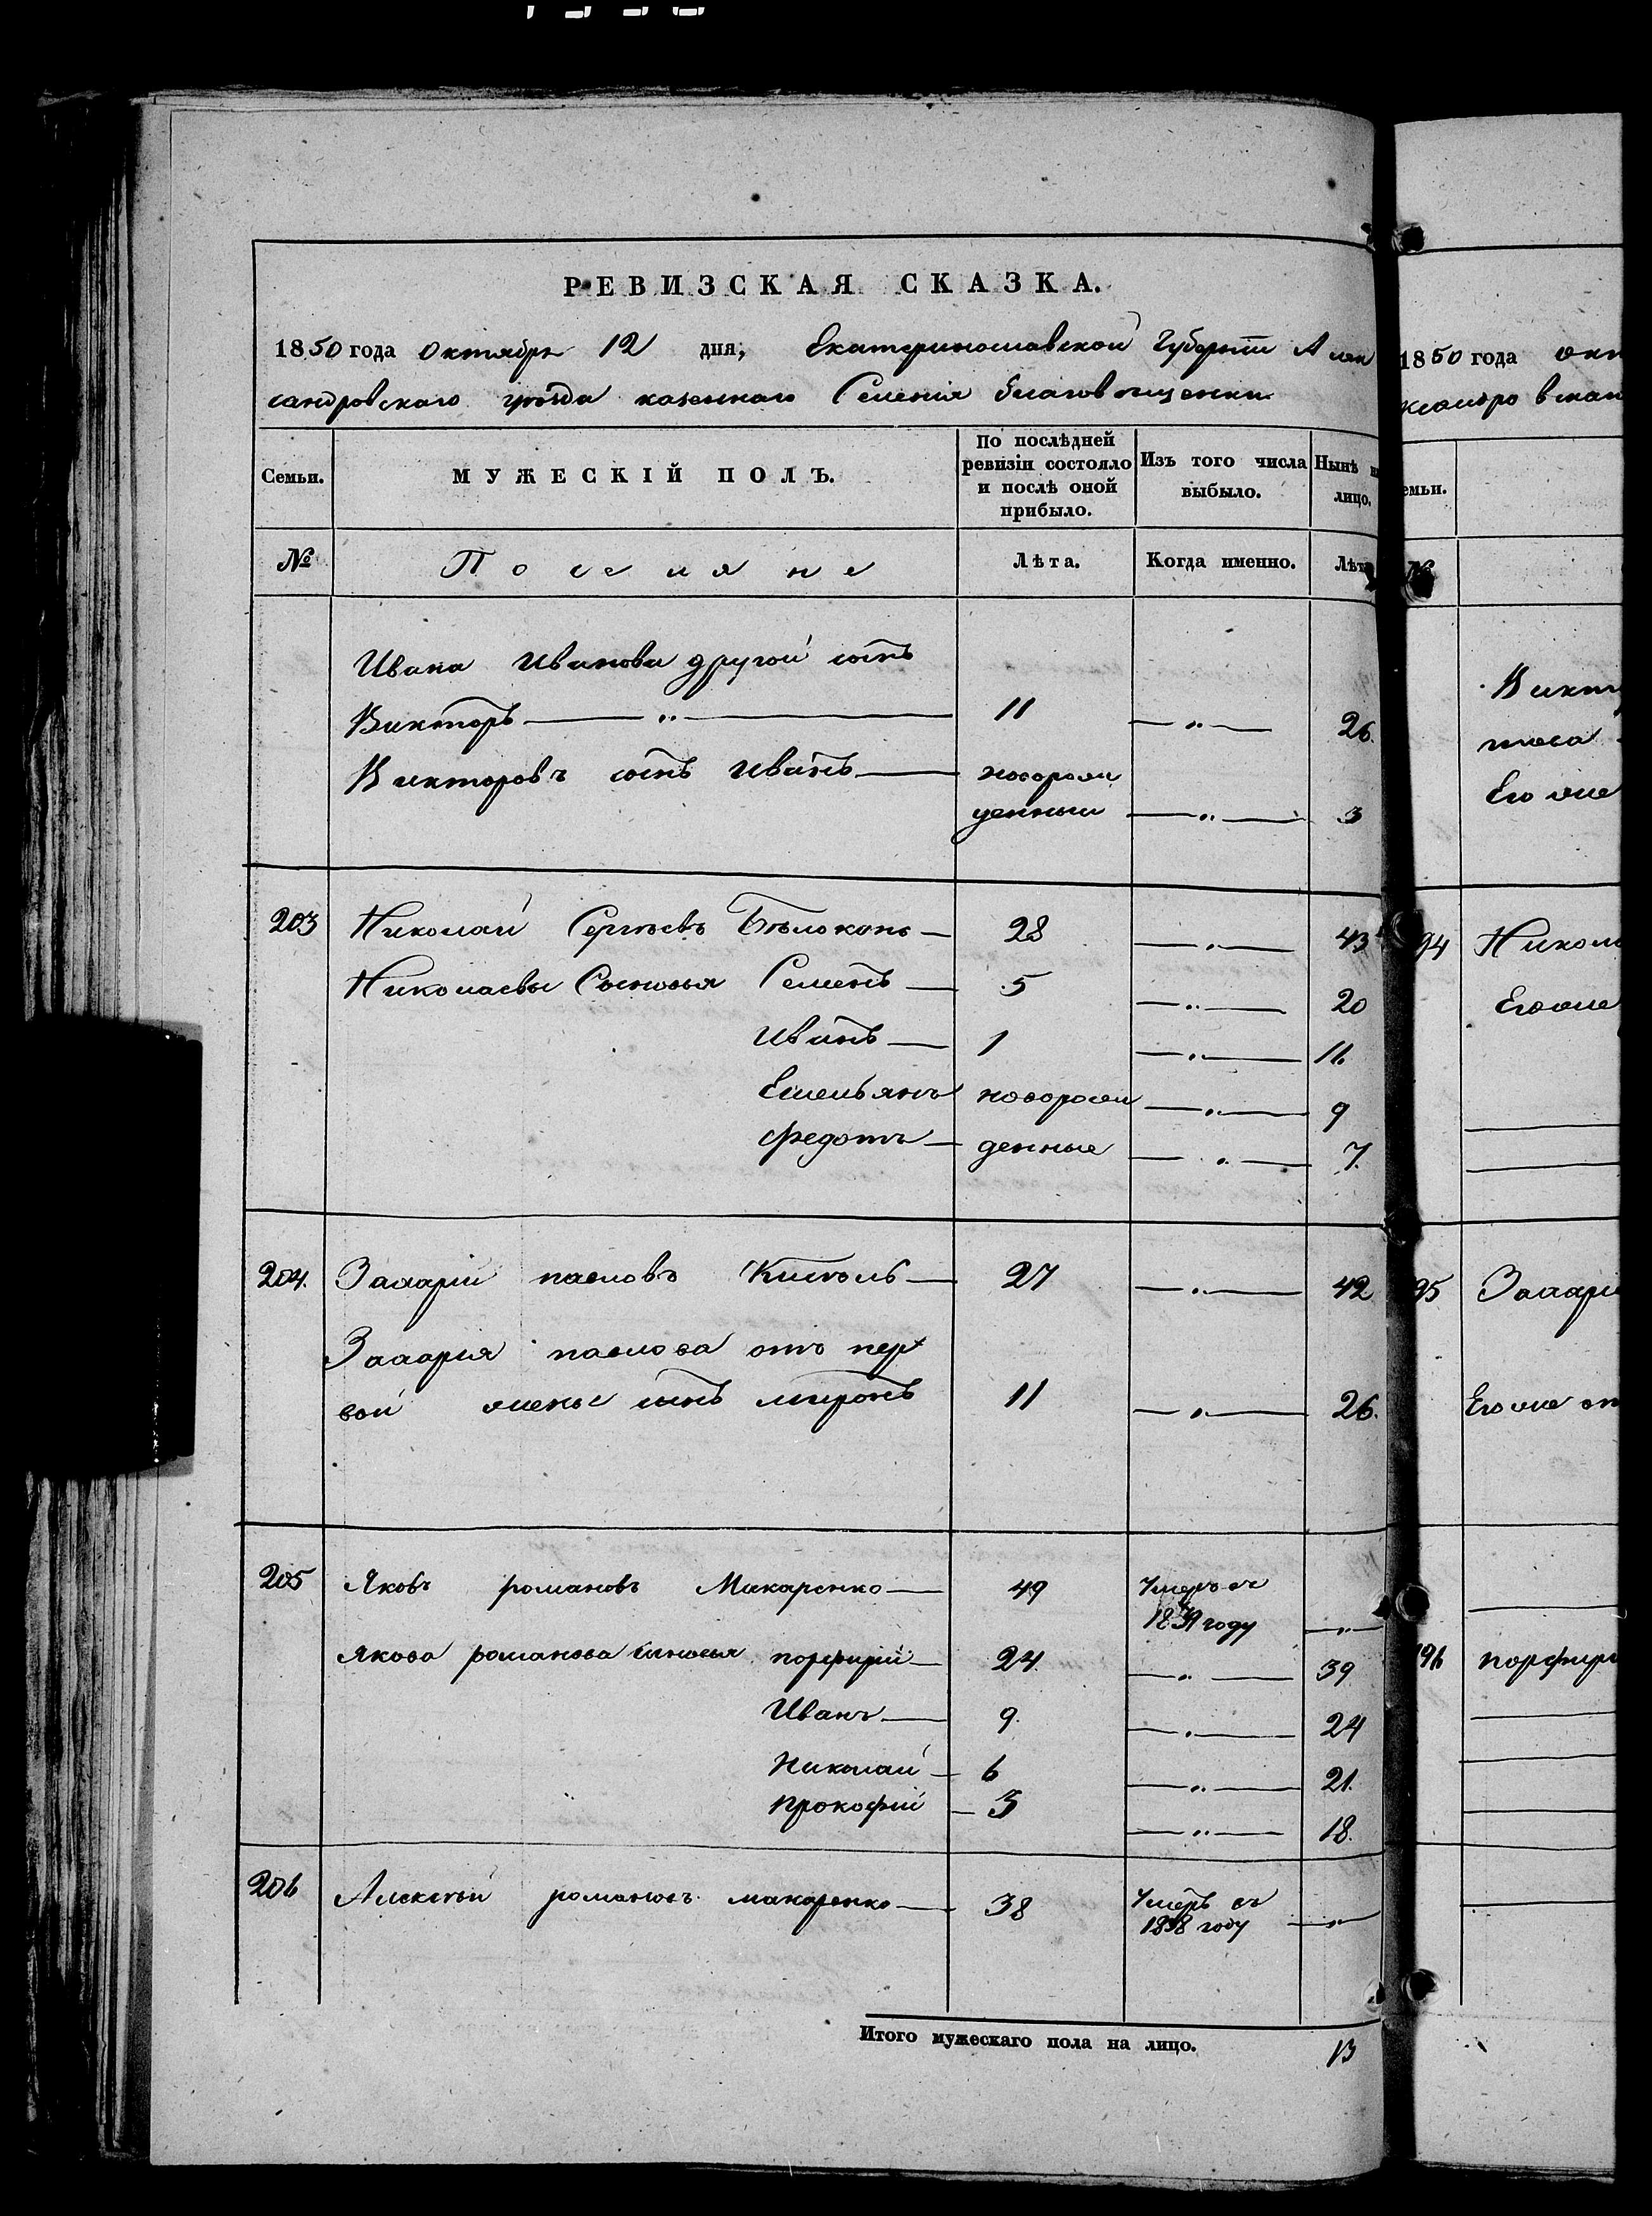 РЕВИЗСКАЯ СКАЗКА.
1850 года Октября 12 дня, Екатеринославской Губерніи Алек
сандровскаго уѣзда казеннаго Селенія благовещенки
Семьи. МУЖЕСКІЙ ПОЛЪ. По послѣдней ревизіи состояло и послѣ оной прибыло. Изъ того числа выбыло. Нынѣ на лицо.
№ Поселяне Лѣта. Когда именно. Лѣта
Ивана Иванова другой сынъ
Викторъ — " — 11 — " — 26.
Викторовъ сынъ Иванъ — новорож
денный — " — 3
203 Николай Сергѣевъ Бѣлоконь — 28 — " — 43
Николаевы Сыновья Семенъ — 5 — " — 20
Иванъ — 1 — " — 16
Емельянъ новорож — " — 9
Федотъ — денные — " — 7.
204. Захарій павловъ — 27 — " — 42
Захарія павлова отъ пер
вой жены сынъ миронъ 11 — " — 26.
205 Яковъ романовъ Макаренко — 49 Умеръ въ
году — " —
Якова романова сыновья порфирій — 24 — " — 39
Иванъ — 9. — " — 24
Николай — 6 — " — 21.
Прокофій — 3 — " — 18.
206 Алексѣй романовъ макаренко — 38 Умеръ въ
1838 году — " —
Итого мужескаго пола на лицо. 13
1850 года окт
Викт
Его же
94 Никол
Его же
95 Захарі
Его же от
196 порфирі